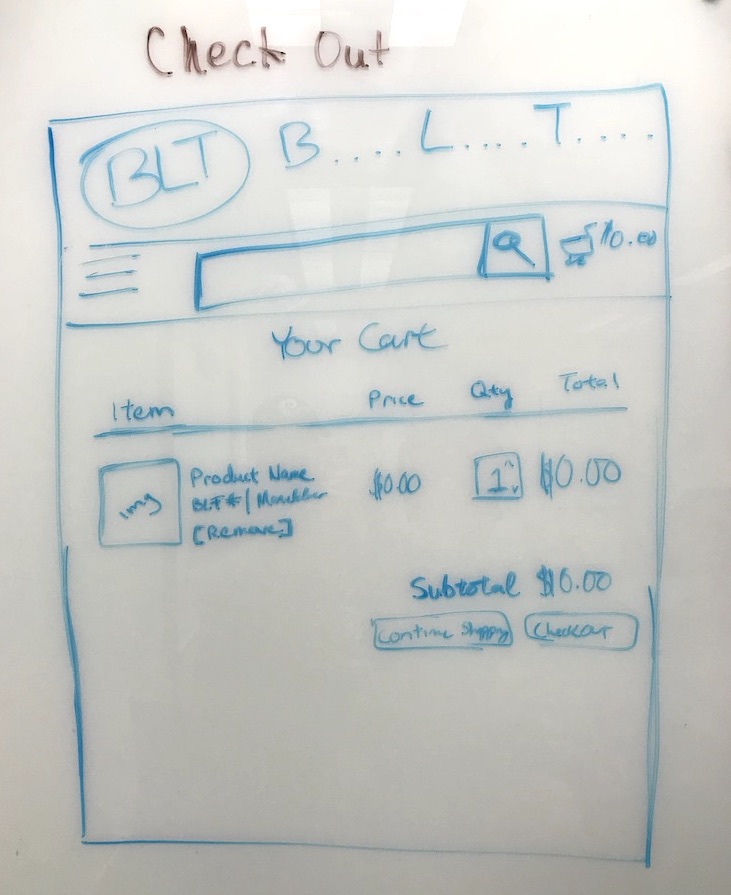 Check Out
BLT B.... L.... T....
$0.00
Your Cart
Item Price Qty Total
img Product Name $0.00 1 $0.00
BLT# |
[Remove]
Subtotal $0.00
Continue Shopping Checkout